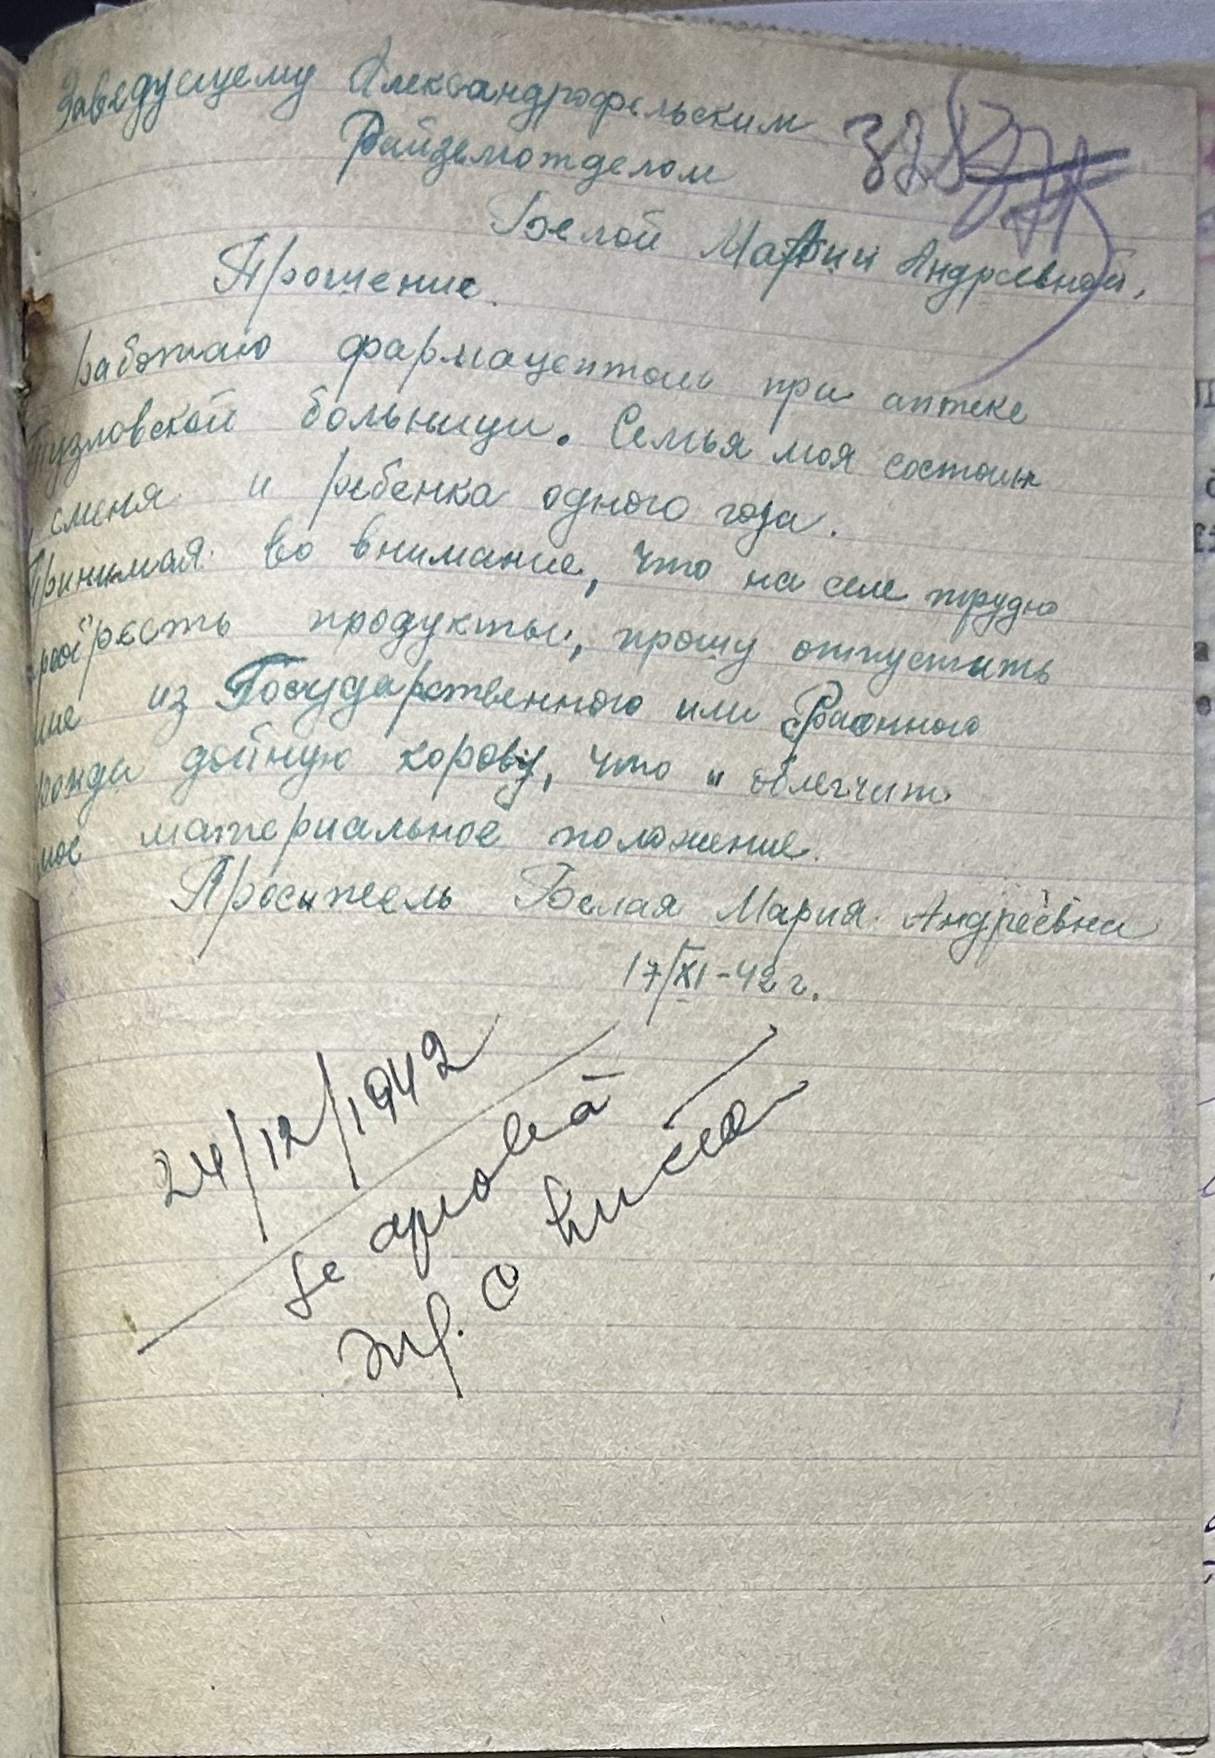 Заведующему Александрофельским
Райземотделом
328
Белой Марии Андреевной,
Прошение.
Работаю фармацевтом при аптеке
Тузловской больници. Семья моя состоит
с меня и ребенка одного года.
Принимая во внимание, что на селе трудно
приобресть продукты, прошу отпустить
мне из Государственного или Районного
фонда дойную корову, что и облегчит
мое материальное положение.
Проситель Белая Мария Андреевна
17/XI-42 г.
24/12/1942
Se aprobă